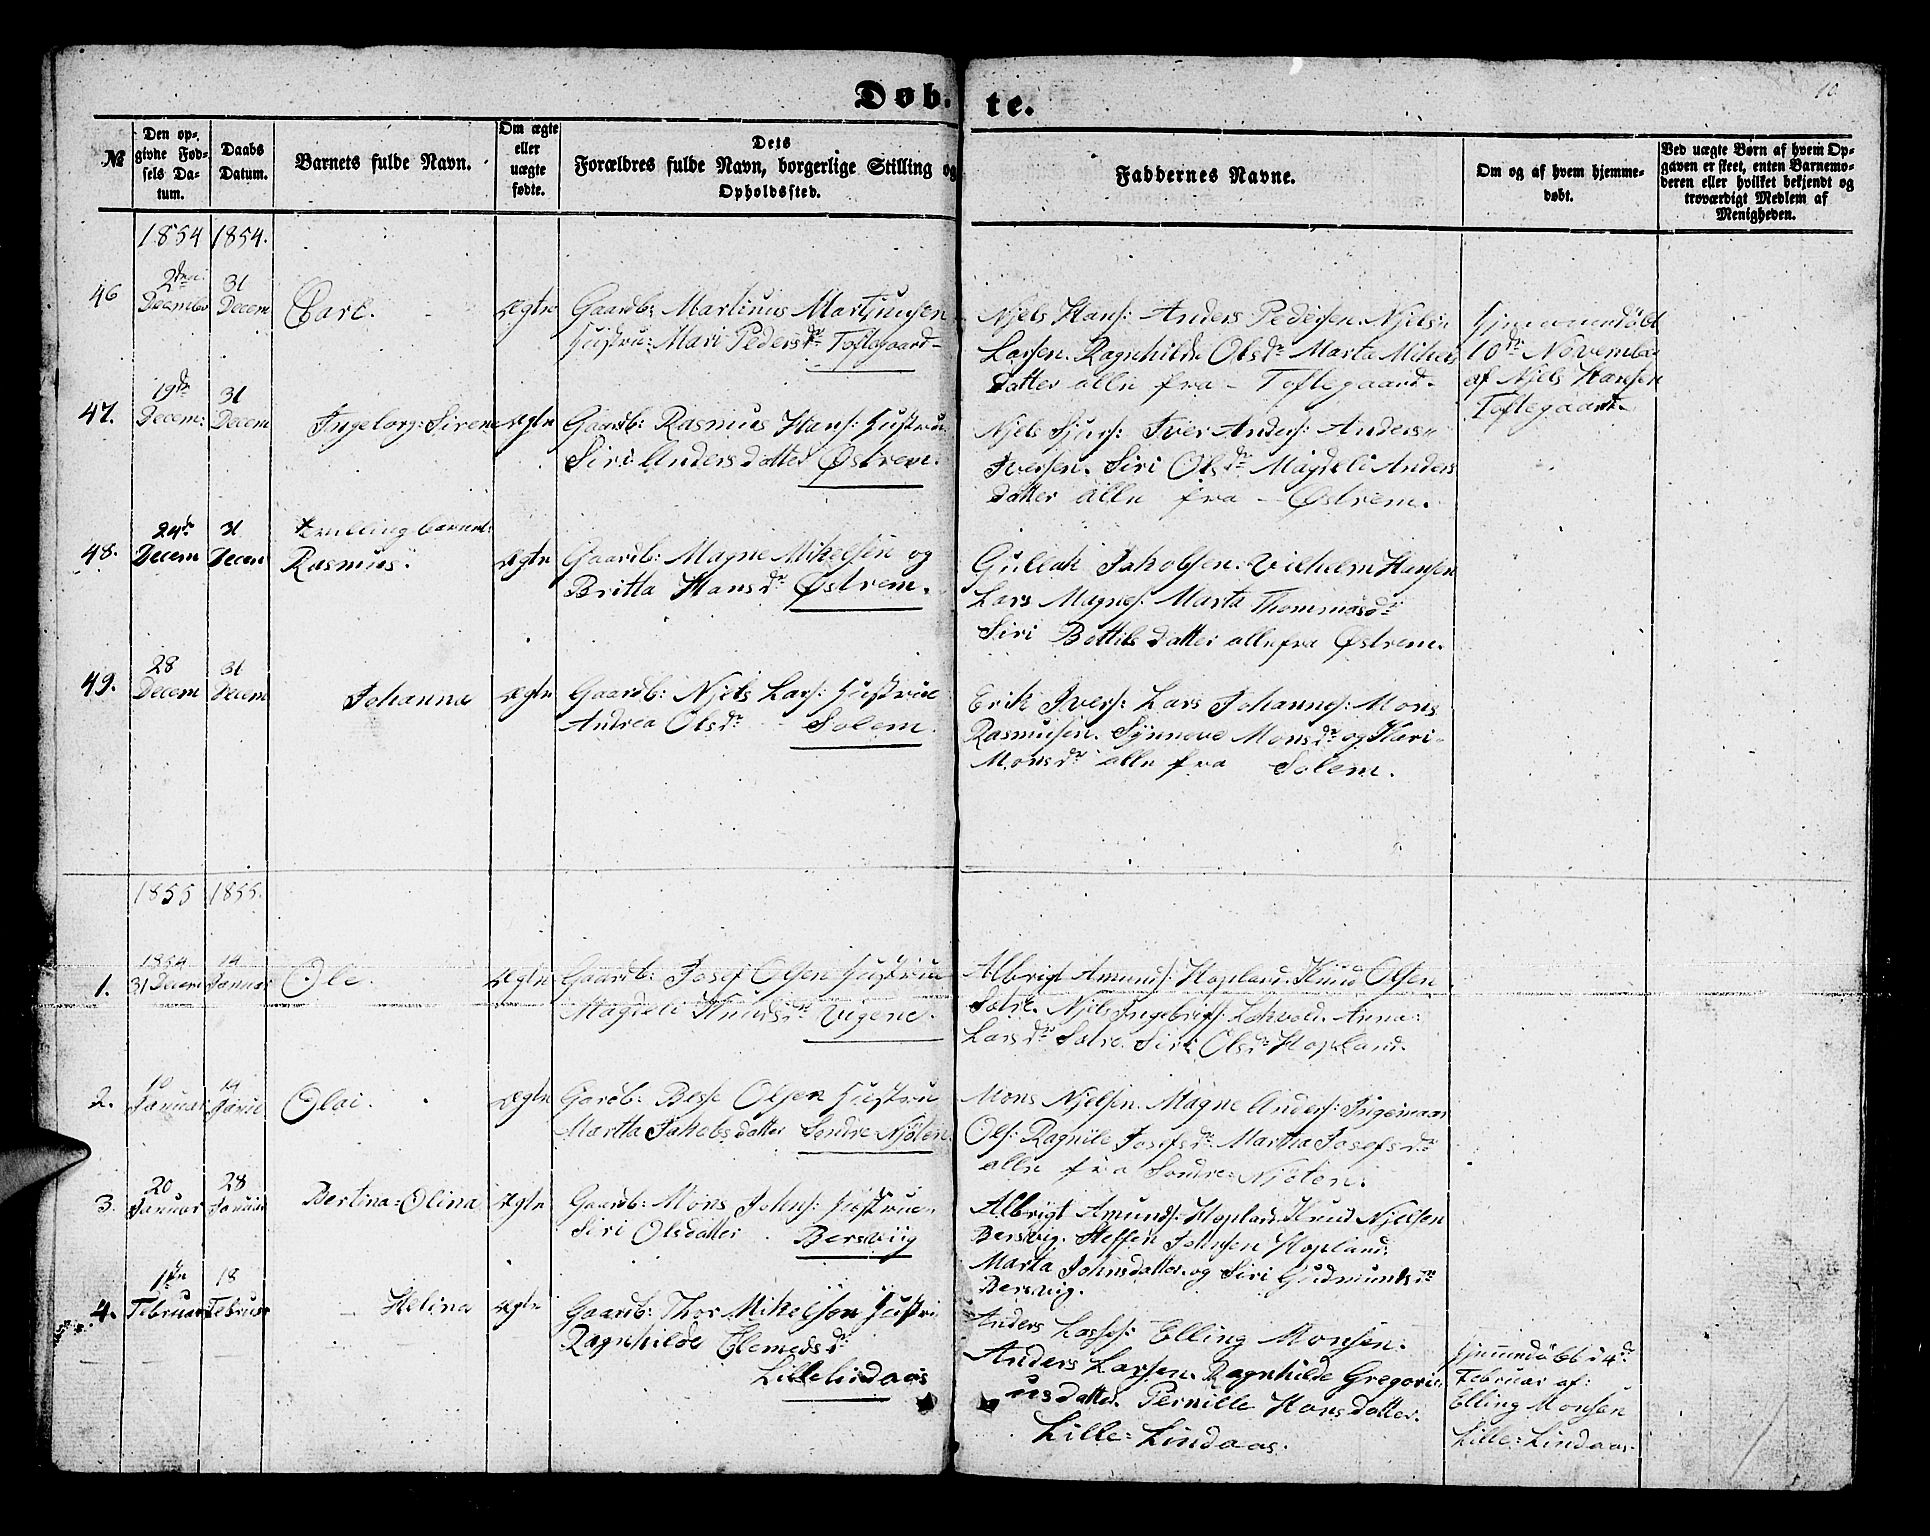 Døb. te.
10
№
Den op-
givne Fød-
sels Da-
tum.
Daabs
Datum.
Barnets fulde Navn.
Om ægte
eller
uægte
fødte.
Dets
Forældres fulde Navn, borgerlige Stilling og
Opholdssted.
Faddernes Navne.
Om og af hvem hjemme-
døbt.
Ved uægte Børn af hvem Op-
gaven er skeet, enten Barnemo-
deren eller hvilket bekjendt og
troværdigt Medlem af
Menigheden.
1854 1854.
46
31
Decem
Carl.
Ægte
Gaardb: Martinus
Hustru: Mari Peders dr Toftegaard
Njels Hans: Anders Pedersen. Njels
Larsen. Ragnhilde Ols dr Marta Mikel
datter alle fra - Toftegaard.
Hjemmedöbt
10de Novembe
af Njels Hansen
Toftegaard.
47.
19de
Decem:
31
Decem
Ingeborg: Siren
Ægte
Gaardb: Rasmus Hans: Hustru
Siri Anders datter Østrem.
Njels Iver Anders: Anders
Iversen. Siri Ols dr Magdeli Anders
datter alle fra - Østrem.
48.
24de
Decem
31
Decem
Tvilling barnet:
Rasmus.
Ægte
Gaardb: Magne Mikelsen og
Britta Hans dr Østrem.
Gullak Jakobsen. Vilhelm Hansen
Lars Magnes: Marta Thommas dr
Siri Bottils datter alle fra Østrem.
49.
28
Decem
31
Decem
Johanna
Ægte
Gaardb: Njels Lars: Hustrue
Andrea Ols dr Solem.
Erik Ivers: Lars Johannes: Mons
Rasmusen. Synneve Mons dr og Kari
Mons dr alle fra Solem.
1855 1855.
1.
1854
31 Decem
14
Januar
Ole.
Ægte
Gaardb: Josef Olsen Hustrue
Magdeli Knuds dr Vigene.
Albrigt Amunds: Hopland. Knud Olsen
Solre. Njels Ingebrigts: Anna
Lars dr Solre. Siri Ols dr Hopland.
2.
10
Januar
14
Januar
Olai.
Ægte
Gardb: Olsen Hustru
Martha Jakobs datter Söndre Njöten
Mons Njelsen. Magne Anders: Ingemaar
Ols: Ragnile Josefs dr Martha Josefs dr
alle fra Söndre=Njöten.
3.
20
Januar
28
Januar
Bertina=Olina
Ægte
Gaardb: Mons Johns: Hustrue
Siri Olsdatter Bersviig
Albrigt Amunds: Hopland Knud Njelsen
Bersvig. Steffen Johnsen Hopland.
Marta Johnsdatter. og Siri Gudmunds dr
Bersvig.
4.
1de
Februar
18
Februar
Helina
Ægte
Gaardb: Thor Mikelsen Hustru
Ragnhilde Clemeds dr
Lille Lindaas
Anders Lasses: Elling Monsen.
Anders Larsen. Ragnhilde Gregori
us datter. Pernille Hans datter.
Lille=Lindaas.
Hjemmedöbt d 4de
Februar af:
Elling Monsen
Lille=Lindaas.